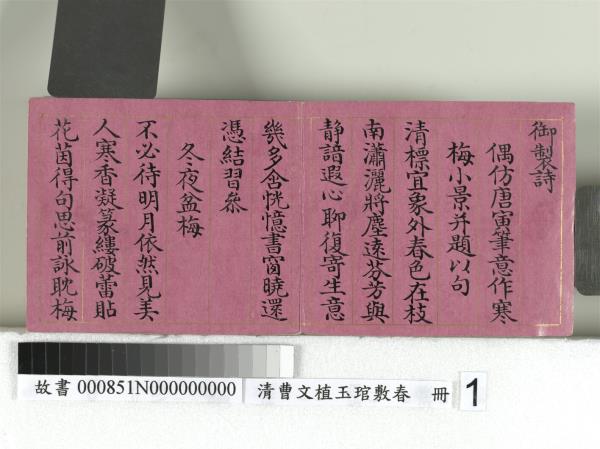 御製詩
偶仿唐寅筆意作寒
梅小景并題以句
清標宜象外春色在枝
南瀟灑將塵遠芬芳與
静諳遐心聊復寄生意
幾多含恍憶書窗曉還
憑結習叅
冬夜盆梅
不必待明月依然見美
人寒香凝篆縷破蕾貼
花茵得句思前詠耽梅
故書 000851N000000000 清曹文植玉琯敷春 冊 1